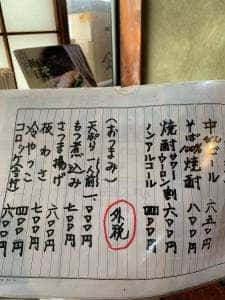 中ビール 六五〇円
そば焼酎 八〇〇円
焼酎サワーウーロン割 六〇〇円
ノンアルコール 四〇〇円
外税
(おつまみ)
天ぷら 一人前 一〇〇〇円
もつ煮込み 七〇〇円
さつま揚げ 六〇〇円
板わさ 七〇〇円
冷やっこ 四〇〇円
コロッケ 六〇〇円